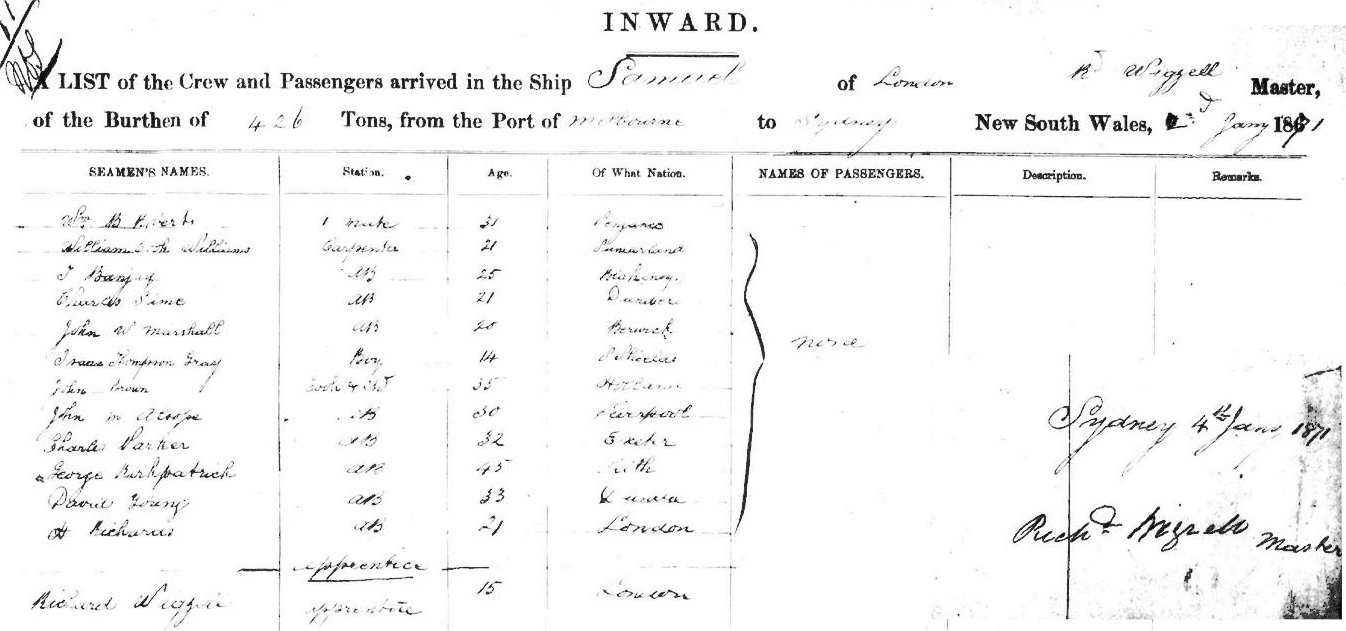 INWARD.
A LIST of the Crew and Passengers arrived in the Ship Samuel of London Rd Wigzell Master,
of the Burthen of 426 Tons, from the Port of Melbourne to Sydney New South Wales, 2nd Jany 1871
SEAMEN'S NAMES. Station. Age. Of What Nation. NAMES OF PASSENGERS. Description. Remarks.
Wm B Roberts 1 Mate 31 Penzance
William Williams Carpenter 21 Sunderland
T 25 AB Blakeney
Charles Sime AB 21 Dunbar
John W Marshall AB 20 Berwick
none
Isaac Thompson Gray Boy 14 S Shields
John Brown Cook & Std 35 Holland
John M AB 30 Liverpool
Sydney 4th Jany 1871
Charles Parker AB 32 Exeter
George Kirkpatrick AB 45 Leith
David Young AB 33
H Richards AB 21 London
Richd Wigzell Master
Apprentice
Richard Wigzell Apprentice 15 London